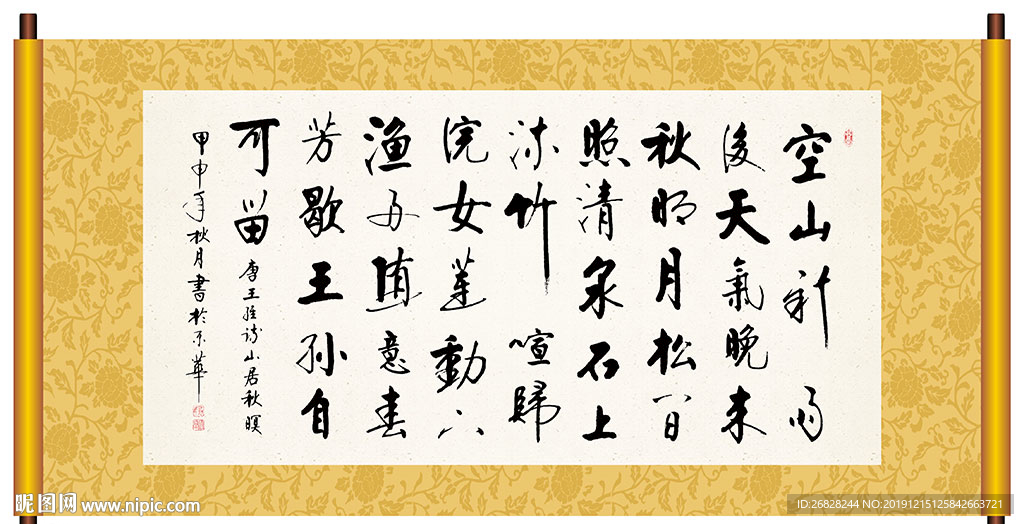 空山新雨
後天氣晚来
秋明月松间
照清泉石上
流竹喧歸
浣女莲動下
渔舟随意春
芳歇王孙自
可留
唐王维诗山居秋暝
甲申年秋月書於京華
昵图网 www.nipic.com
ID:26828244 NO:20191215125842663721